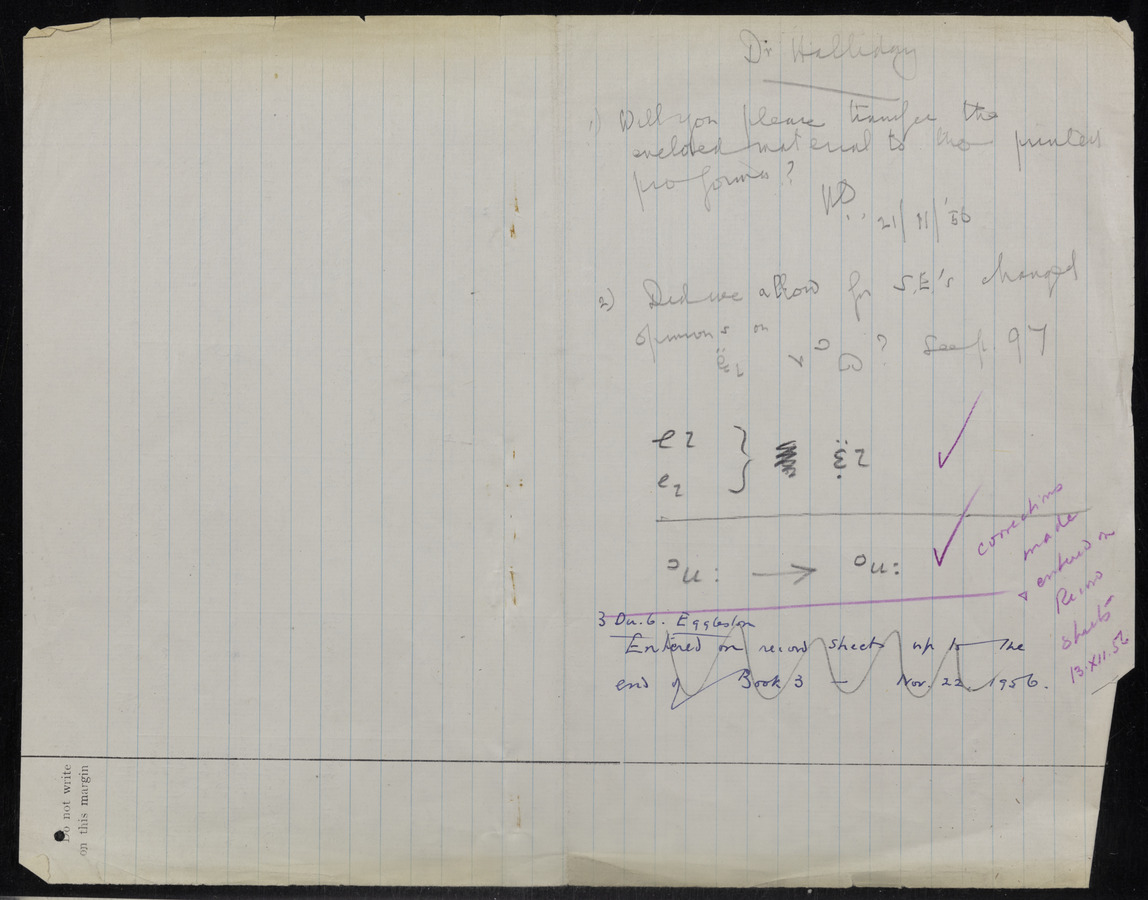 Dr Halliday
1) Will you please transfer the
enclosed material to the printed
pro formas?
21/11/'56
2) Did we allow for S.E.'s changed
opinions on
? See p 97
corrections
made
entered on
Record
sheets
13.XII.56
3 Du.6. Eggleston
Entered on record sheets up to the
end of Book 3 — Nov. 22. 1956.
Do not write
on this margin